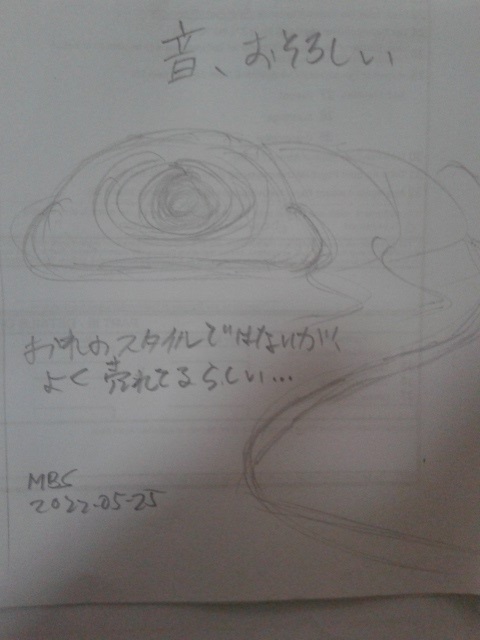 音、おそろしい
おれのスタイルではないがく
よく売れてるらしい...
MBS
2022-05-25